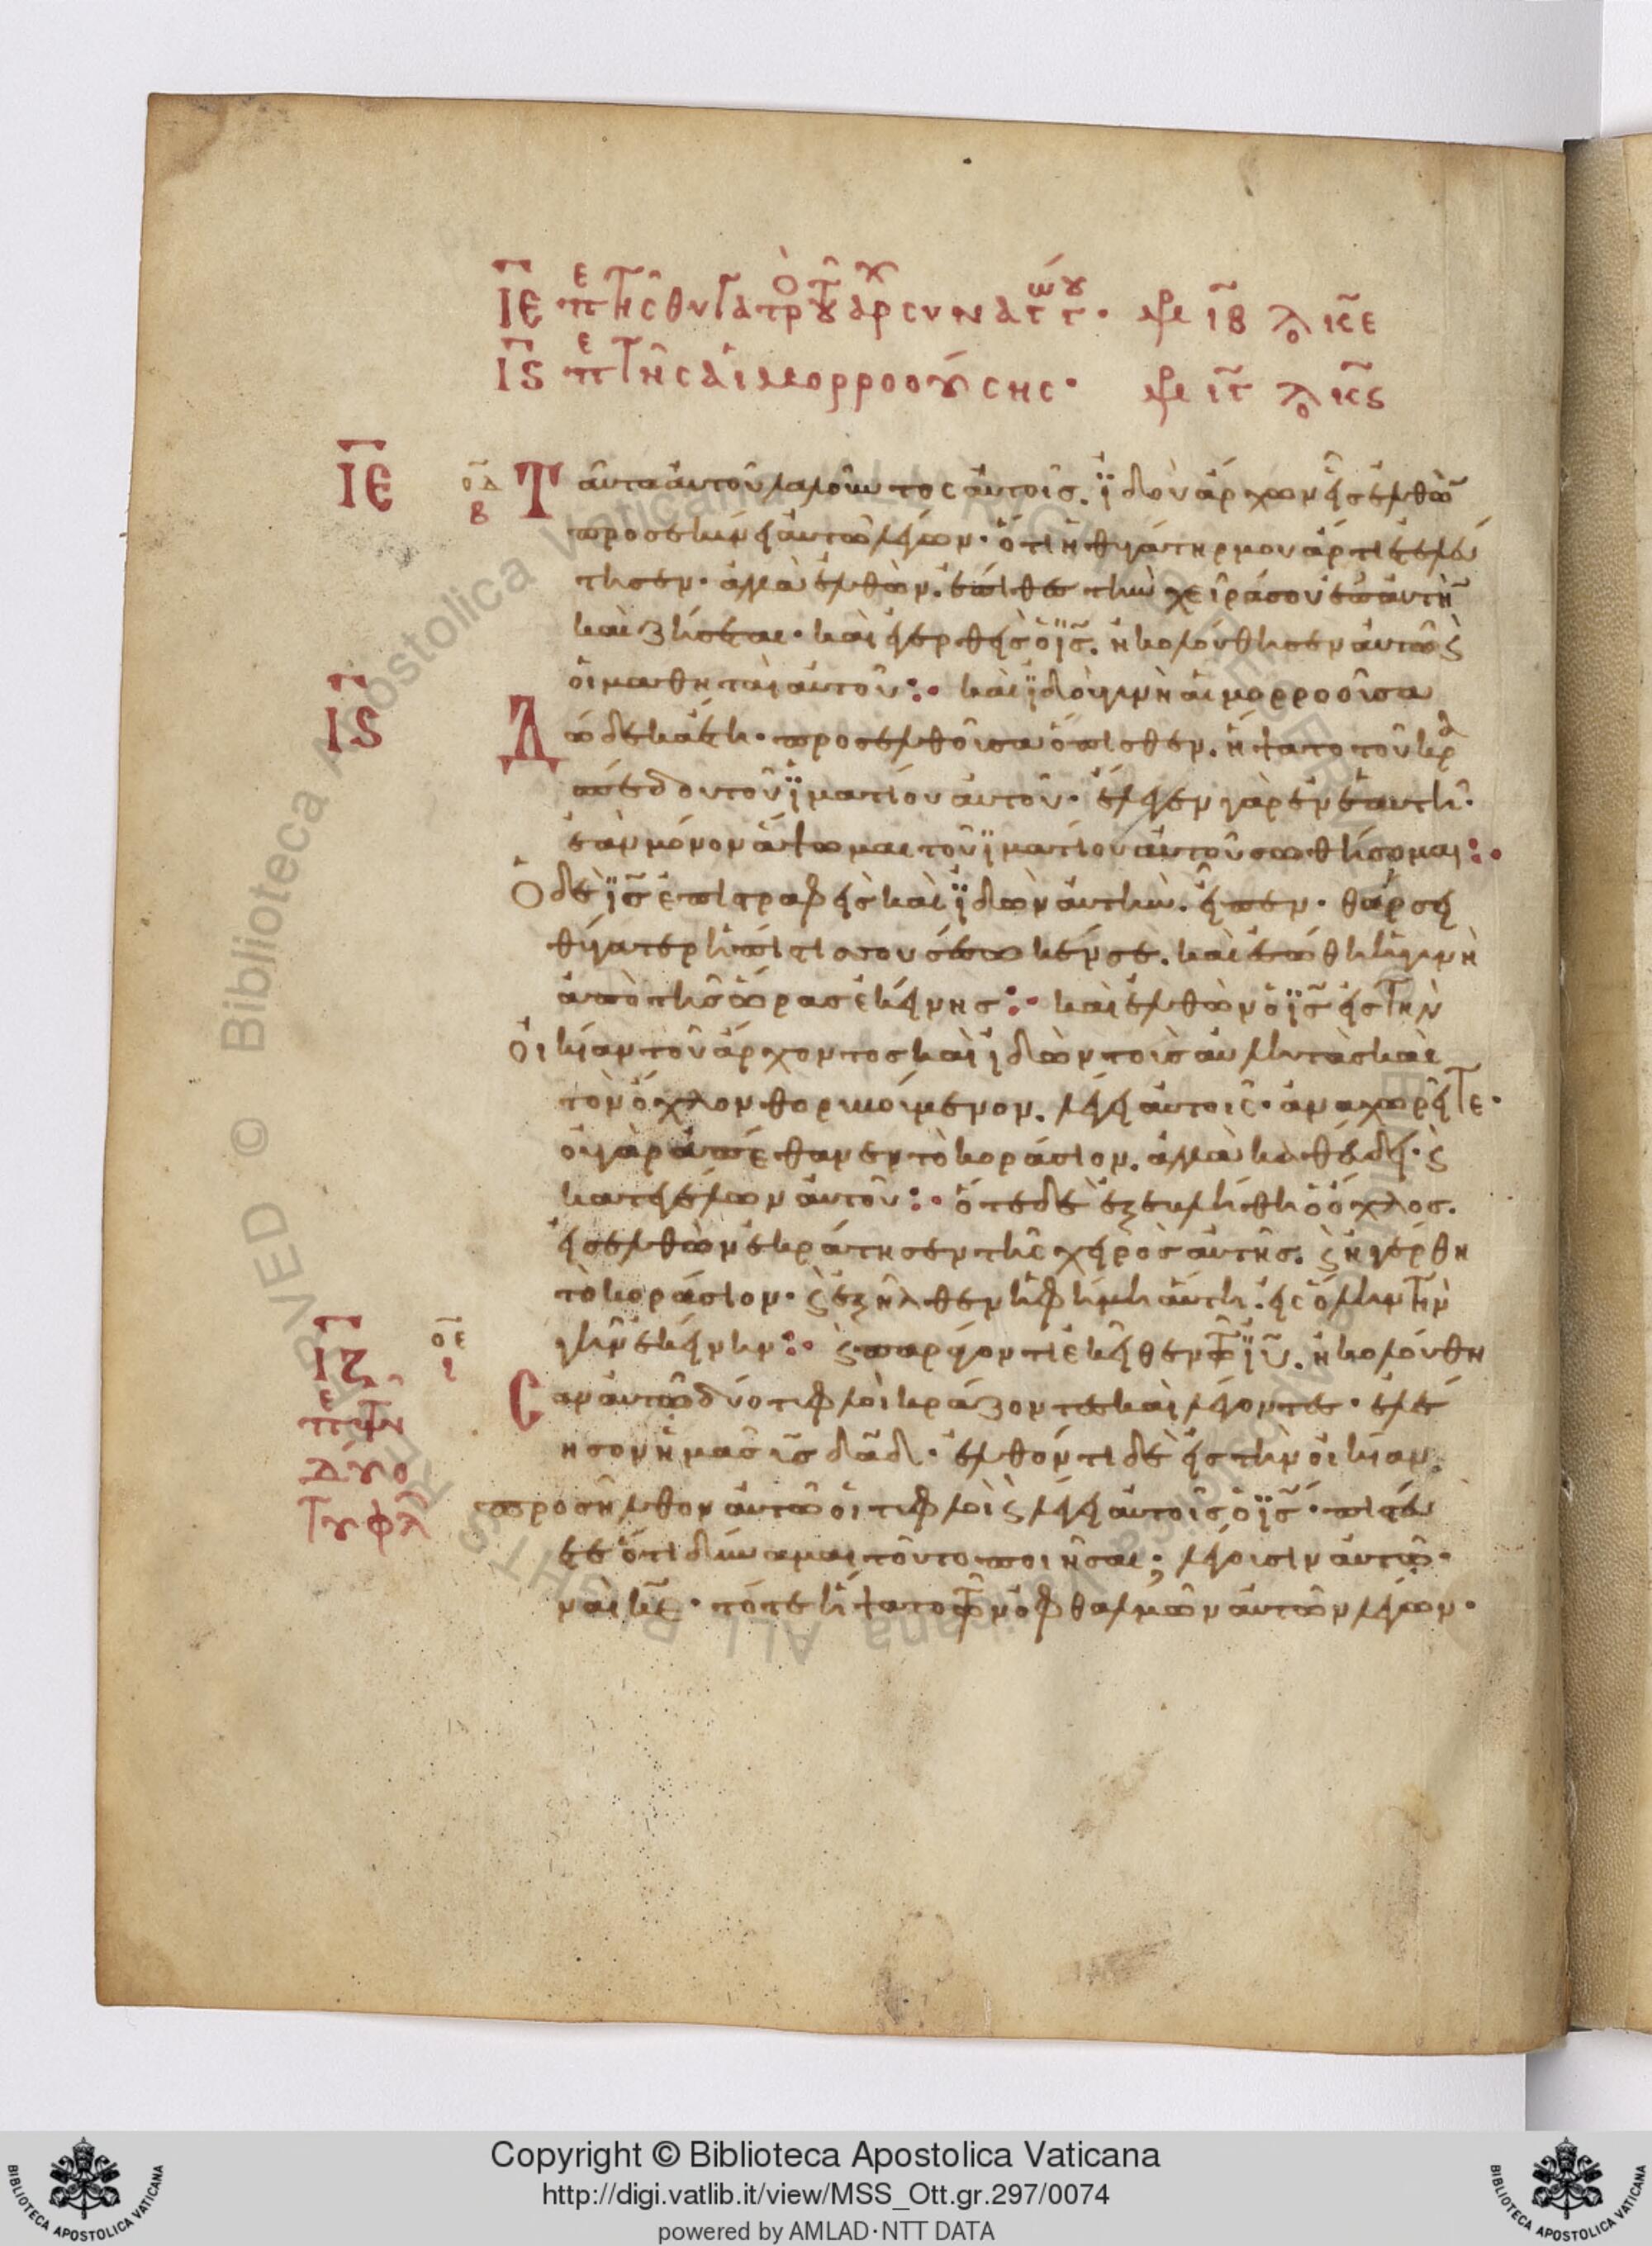 ΙΕ πε τῆς θυγατρὸς τοῦ ἀρχισυναγώγου· μρ ιβ λο κε
Ις πε τῆς αἱμορροούσης· μρ ιγ λο κς
ΙΕ οδ β Ταῦτα αὐτοῦ λαλοῦντος αὐτοῖς. ἰδοὺ ἄρχων εἰσελθὼ
προσεκύνει αὐτῶ λέγων· ὅτι ἡ θυγάτηρ μου ἄρτι ἐτελεύ
τησεν· ἀλλὰ ἐλθὼν. ἐπίθες τὴν χεῖρά σου ἐπ' αὐτὴ
καὶ ζήσεται· καὶ ἐγερθεὶς ὁ ις. ἠκολούθησεν αὐτῶ ϛ
οἱ μαθηταὶ αὐτοῦ: καὶ ἰδοὺ γυνὴ αἱμορροοῦσα
Ις Δώδεκα ἔτη· προσελθοῦσα ὄπισθεν. ἥψατο τοῦ κρα
σπέδου τοῦ ἱματίου αὐτοῦ· ἔλεγεν γὰρ ἐν ἑαυτῆ·
ἐὰν μόνον ἅψωμαι τοῦ ἱματίου αὐτοῦ σωθήσομαι:
Ὁ δὲ ις ἐπιστραφεὶς καὶ ἰδὼν αὐτὴν. εἶπεν· θάρσει
θύγατερ ἡ πίστις σου σέσωκέν σε. καὶ ἐσώθη ἡ γυνὴ
ἀπὸ τῆς ὥρας ἐκείνης: καὶ ἐλθὼν ὁ ις εἰς τὴν
οἰκίαν τοῦ ἄρχοντος καὶ ἰδὼν τοὺς αὐλητὰς καὶ
τὸν ὄχλον θορυβούμενον. λέγει αὐτοῖς· ἀναχωρεῖτε·
οὐ γὰρ ἀπέθανεν τὸ κοράσιον. ἀλλὰ καθεύδει· ϛ
κατεγέλων αὐτοῦ: ὅτε δὲ ἐξεβλήθη ὁ ὄχλος.
εἰσελθὼν ἐκράτησεν τῆς χειρὸς αὐτῆς. ϛ ἠγέρθη
τὸ κοράσιον· ϛ ἐξῆλθεν ἡ φήμη αὕτη. εἰς ὅλην τὴν
ΙΖ οε ι γῆν ἐκείνην: ϛ παράγοντι ἐκεῖθεν τῶ ιυ. ἠκολούθη
πε τῶν Cαν αὐτῶ δύο τυφλοὶ κράζοντες καὶ λέγοντες· ἐλέ
δύο ησον ἡμᾶς υἱὲ δαδ· ἐλθόντι δὲ εἰς τὴν οἰκίαν.
τυφλ προσῆλθον αὐτῶ οἱ τυφλοὶ ϛ λέγει αὐτοῖς ὁ ις· πιστεύε
τε ὅτι δύναμαι τοῦτο ποιῆσαι; λέγουσιν αὐτῶ·
ναὶ κε· τότε ἥψατο τῶν ὀφθαλμῶν αὐτῶν λέγων·
Copyright © Biblioteca Apostolica Vaticana
http://digi.vatlib.it/view/MSS_Ott.gr.297/0074
powered by AMLAD·NTT DATA